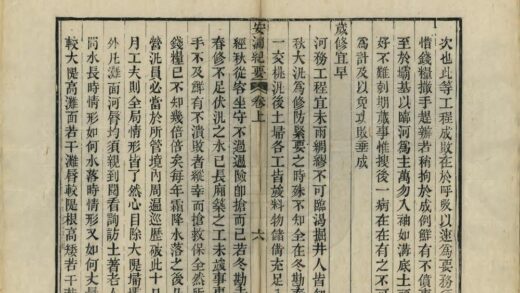 次也此等工程成敗在於呼吸以速爲要務
惜錢糧撒手趕辦若稍拘於成例鮮有不僨事
至於壩基以臨河爲主萬勿入袖如溝底土
好不難剋期蕆事惟搜後一病在在有之不可
爲計及以免功敗垂成
歲修宜早
河務工程宜未雨綢繆不可臨渴掘井人皆知
秋大汛爲修防緊要之時殊不知全在冬勘
一交桃汛後土埽各工皆竣料物儲備充足
安瀾紀要 卷上 六
經秋從容坐守不過遇險即搶而已若冬勘
春修不足伏汛之水已長廂築之工未竣事事
手不及鮮有不潰敗者縱幸而搶救保全然所
錢糧已不知幾倍倍矣每年霜降水落之後
營汛員必當於所管境內周遍巡歷破此十日
月工夫則全局情形皆了然心目除大隄埽
外凡灘面河唇均須親到閱看詢訪土著老人
問水長時情形如何水落時情形又如何丈量
較大隄高灘面若干灘唇較隄根高矮若干